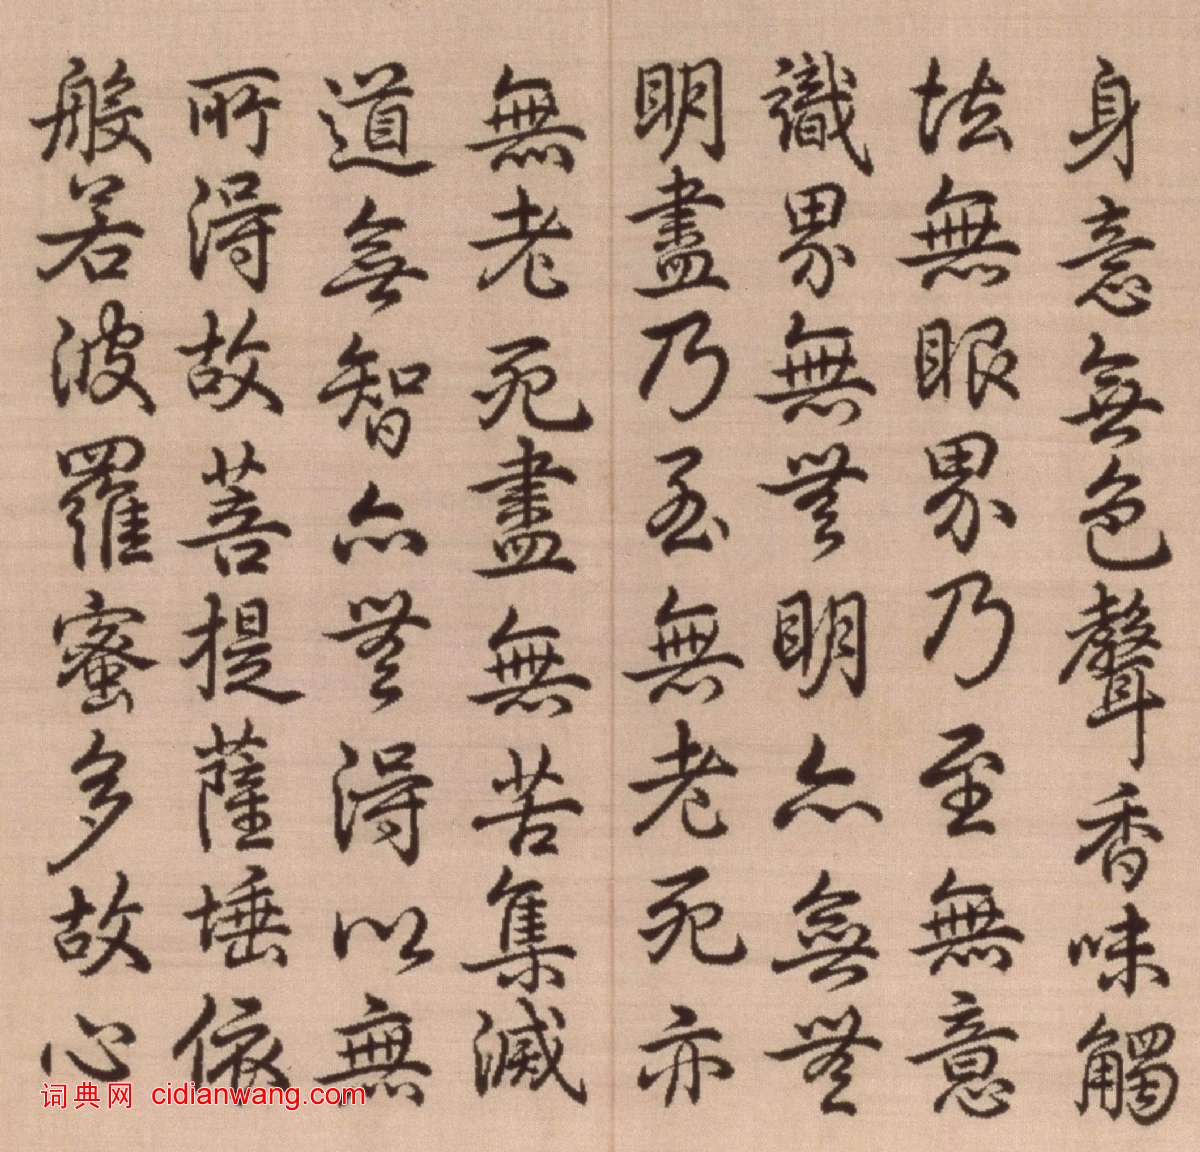 身意無色聲香味觸
法無眼界乃至無意
識界無無明亦無無
明盡乃至無老死亦
無老死盡無苦集滅
道無智亦無得以無
所得故菩提薩埵依
般若波羅蜜多故心
词典网 cidianwang.com